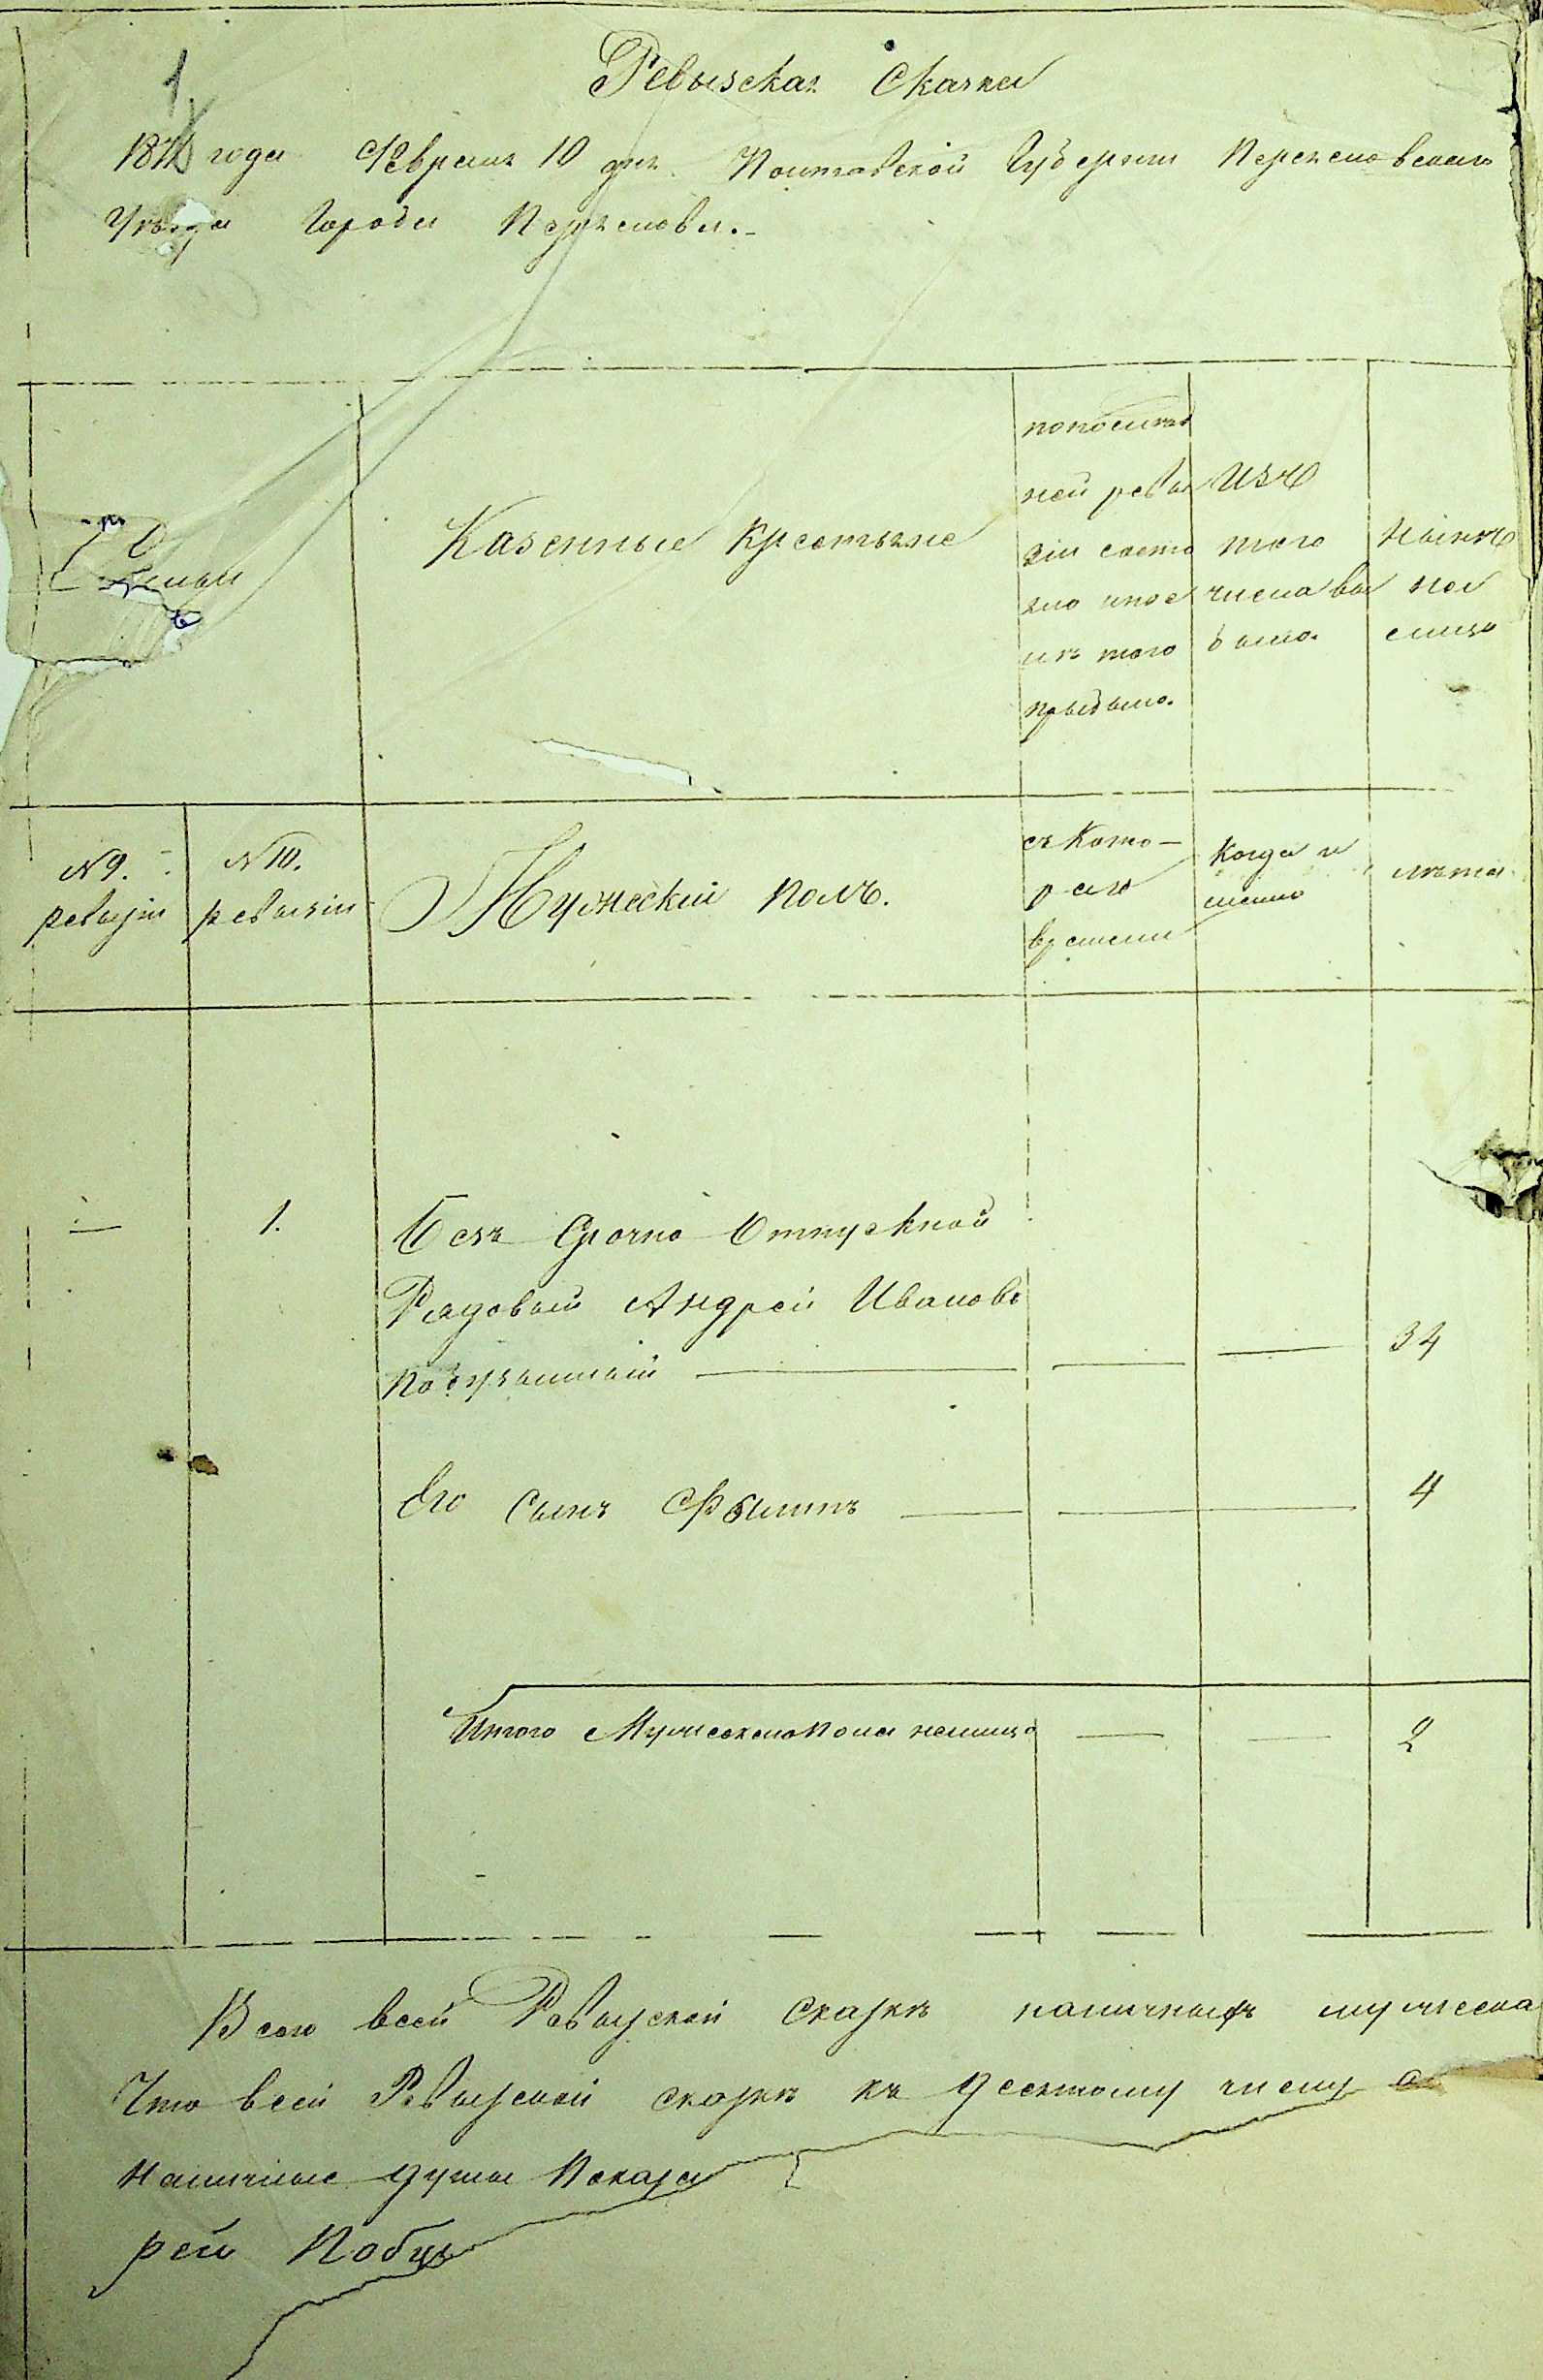 1
Ревызская Сказка
года Февраля 10 дня Полтавской Губернии Переяславскаго
Уезда Города Переяслова.
Казенные Крестьяне
попослед
ней ревы
зіи состо
яло ипос
лѣ того
прыбыло.
Изъ
того
числа вы
было.
Нынѣ
на
лицо
№ 9.
ревызіи
№ 10.
ревызіи
Мужескій полъ.
съ Кото-
раго
времени
Когда и
лѣта
—
1.
Безъ Срочно Отпускной
Рядовый Андрей Ивановъ
34
Его Сынъ Филипъ
4
Итого Мужескаго Пола налицо
2
Всего всей Ревызской Сказкѣ наличныхъ мужеска
Что всей Ревызской сказкѣ къ десятому числу
Наличные души Показа
рей